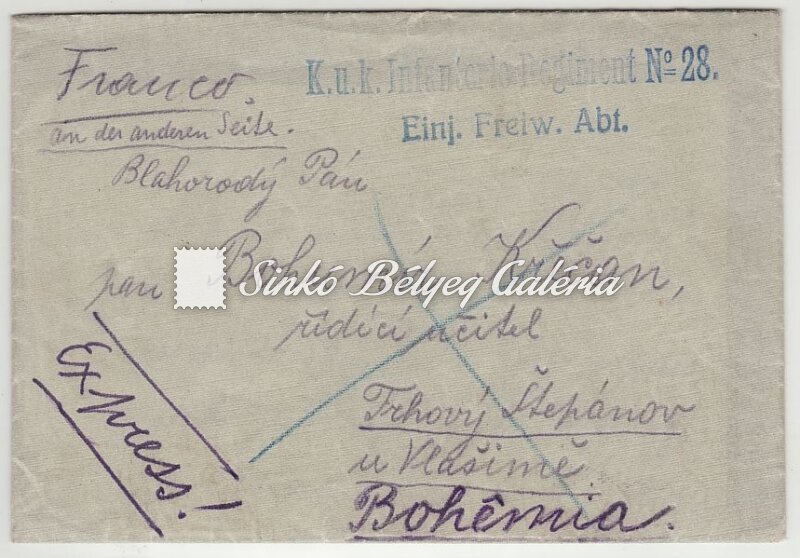 Franco.
an der anderen Seite.
K.u.k. Infanterie Regiment No 28.
Einj. Freiw. Abt.
Blahorodý Pán
pan
Křičan,
Sinkó Bélyeg Galéria
řídící učitel
Express!
Trhový Štěpánov
u Vlašimě.
Bohêmia.